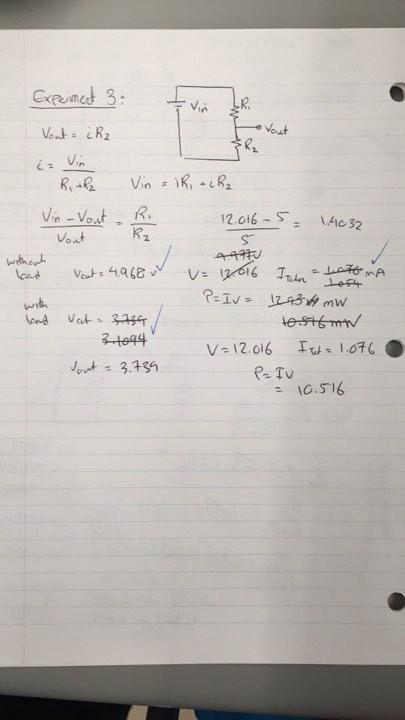 Experiment 3:
Vin R1 Vout R2
Vout = iR2
i = Vin / R1+R2
Vin = iR1 + iR2
Vin - Vout / Vout = R1 / R2
12.016 - 5 / 5 = 1.4032
9.977V
without load Vout = 4.968 V ✓ V = 12.016 Itotal = 1.076 mA ✓
1.054
P = IV = mW
10.516 mW
with load Vout = 3.739
3.1094 ✓
V = 12.016 Itot = 1.076
Vout = 3.739
P = IV
= 10.516